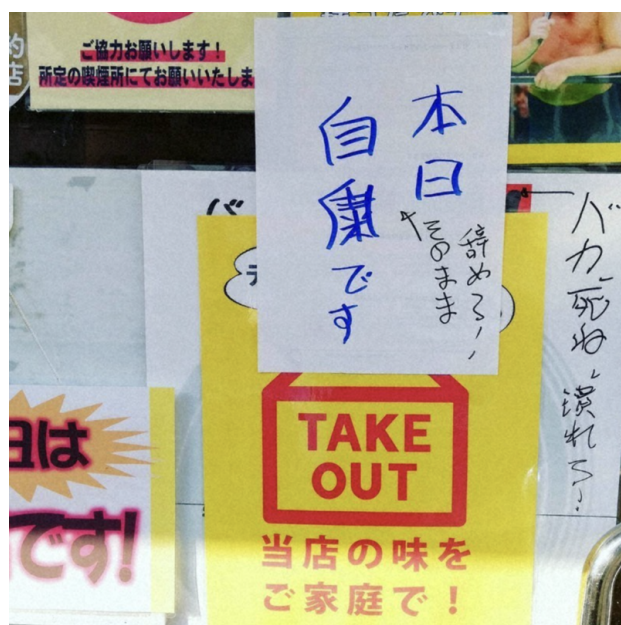 ご協力お願いします!
所定の喫煙所にてお願いいたしま
本日
自粛です
辞めろ!
そのまま
バカ、死ね、潰れろ!
バ
テ
TAKE
OUT
当店の味を
ご家庭で!
日は
です!